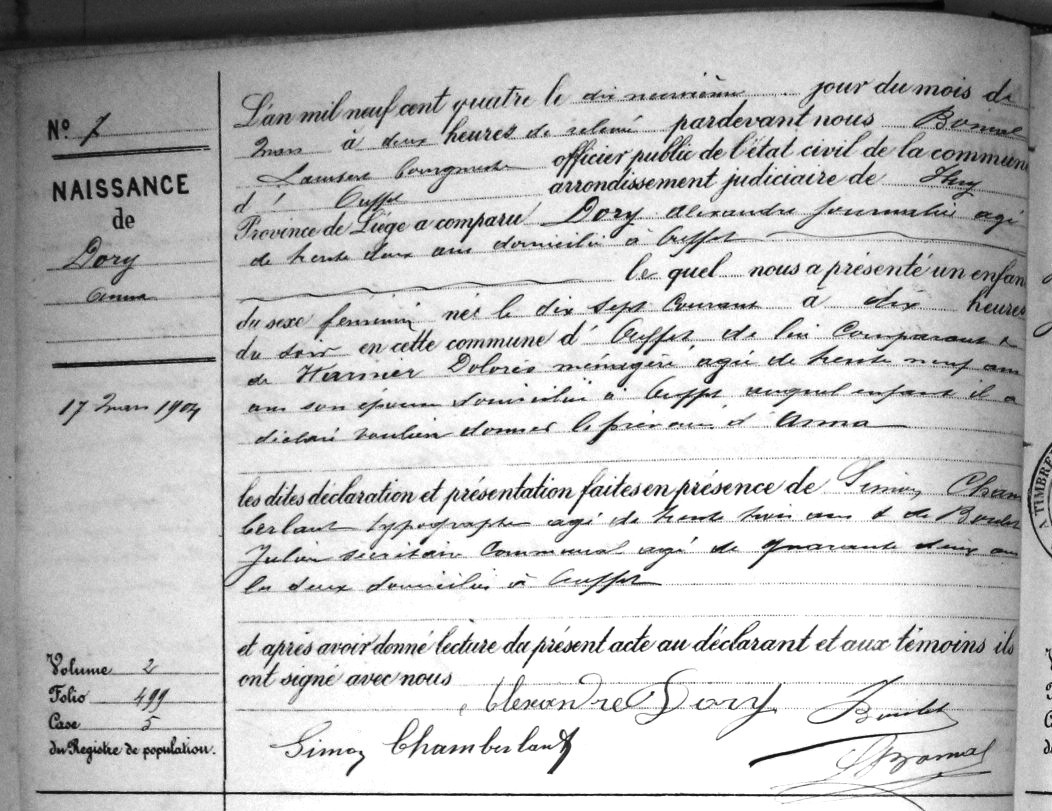 N° 7
NAISSANCE
de
Dory
Anna
17 Mars 1904
Volume 2
Folio 499
Case 5
du Registre de population.
L'an mil neuf cent quatre le dix neuvième jour du mois de
Mars à deux heures de relevée pardevant nous Bonmal
Lambert bourgmestre officier public de l'état civil de la commune
d' Ouffet arrondissement judiciaire de Huy
Province de Liége a comparu Dory Alexandre journalier agé
de trente deux ans domicilié à Ouffet
le quel nous a présenté un enfan
du sexe féminin né le dix sept courant à dix heures
du soir en cette commune d' Ouffet de lui comparant &
de Warnier Dolorès ménagère agée de trente neuf ans
ans son épouse domiciliée à Ouffet auquel enfant il a
déclaré vouloir donner le prénom d' Anna
les dites déclaration et présentation faites en présence de Simon Cham
berlant typographe agé de trente trois ans & de Boulet
Julien secrétaire communal agé de quarante deux ans
les deux domiciliés à Ouffet
et après avoir donné lecture du présent acte au déclarant et aux témoins ils
ont signé avec nous
Alexandre Dory Boulet
Simon Chamberlant LBonmal
A TIMBRE